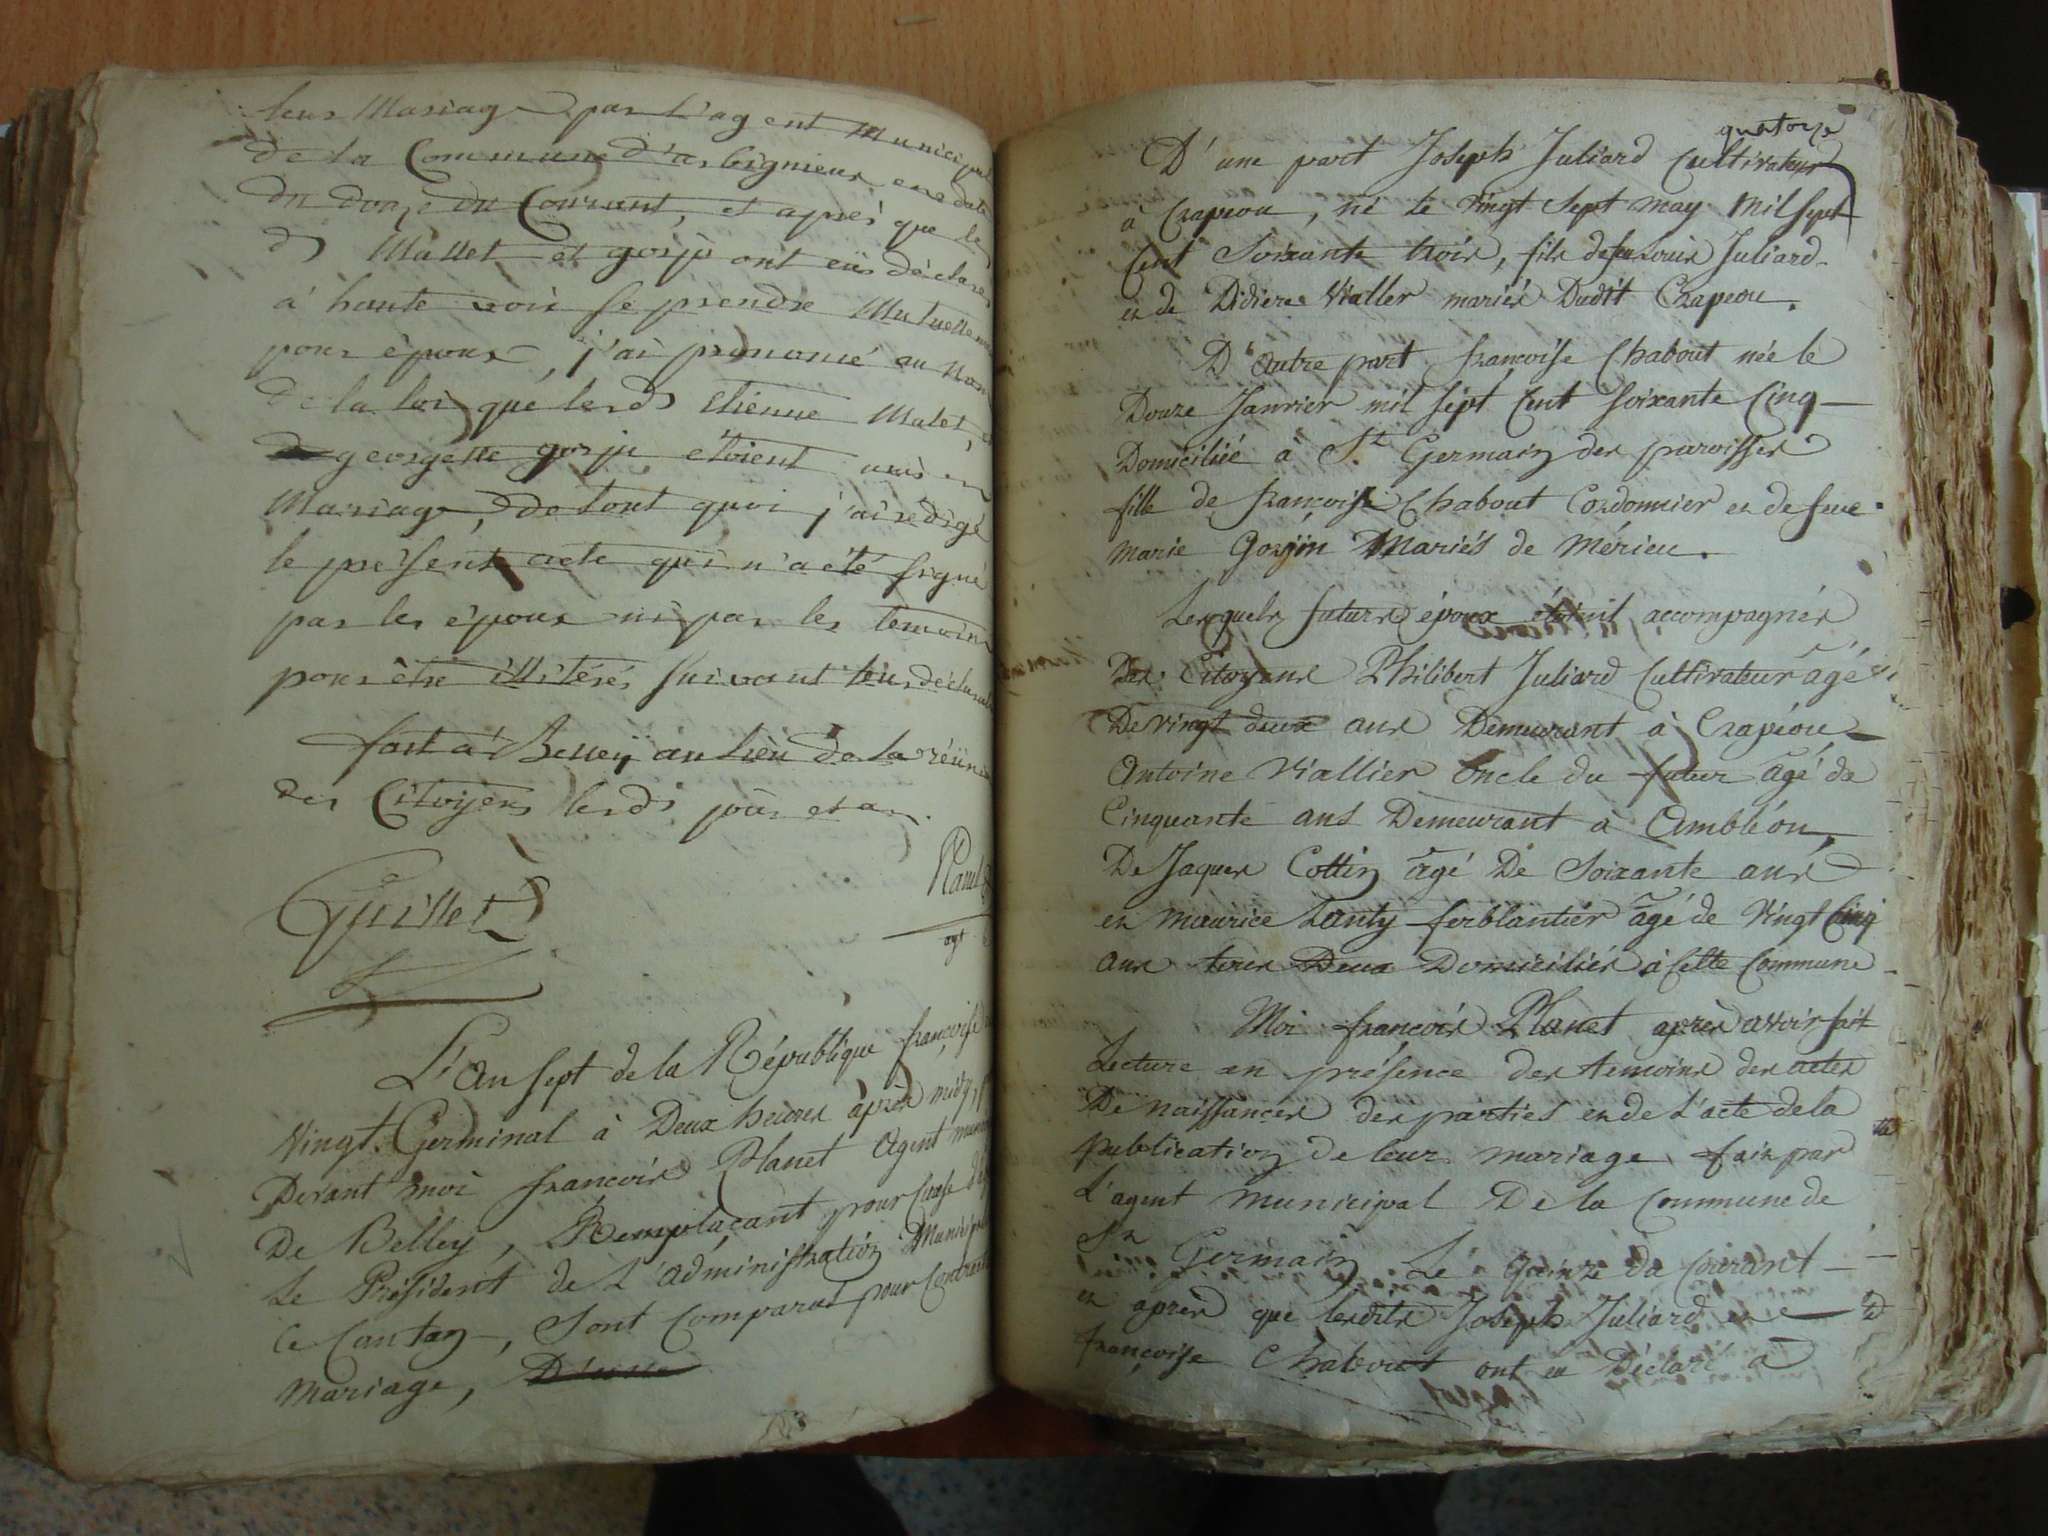 leur Mariage par L'agent Municipal
de la Commune d'arbignieux en date
du douze du Courant, et après que les
ds Mallet et gorju ont eüs déclarés
à haute voix se prendre Mutuellement
pour époux, j'ai prononcé au Nom
de la loi que lesds etienne Malet, et
georgette gorju étoient unis en
Mariage, de tout quoi j'ai redigé
le présent acte qui n'a été signé
par les époux ni par les temoins
pour être illitérés suivant leur déclaration
fait à Belleÿ au lieu de la réünion
des Citoyens lesds jour et an.
Planet
Guillet
agt
L'an sept de la République françoise
Vingt Germinal à Deux heures après midy,
Devant moi françois Planet Agent municipal
De Belleÿ, Remplaçant pour cause
Le Président de L'administration Municipale
Ce Canton, Sont Comparus pour Contracter
Mariage,
quatorze
D'une part Joseph Juliard Cultivateur
à Crapeou, né le vingt sept may Mil sept
Cent Soixante trois, fils de feu Louis Juliard
et de Didiere Vialler mariés Dudit Crapeou.
D'autre part françoise Chabout née le
Douze Janvier mil sept Cent Soixante Cinq
Domiciliée à St Germain des paroisses
fille de françois Chabout Cordonnier et de feue
Marie Gorjin Mariés de Mérieu.
Lesquels futurs époux étoient accompagnés
Des Citoyens Philibert Juliard Cultivateur âgé
De vingt deux ans Demeurant à Crapéou
Antoine Viallier Oncle du futur âgé de
Cinquante ans Demeurant à Ambléon,
De Jaques Cottin âgé De Soixante ans
et Maurice Lanty ferblantier âgé de Vingt Cinq
Ans tous Deux Domiciliés à Cette Commune
Moi françois Planet après avoir fait
Lecture en présence des temoins des actes
De naissances des parties et de L'acte de la
publication de leur mariage fait par
L'agent Municipal De la Commune de
St Germain Le Quinze du Courant
et après que lesdits Joseph Juliard et
françoise Chabout ont eu Déclaré à